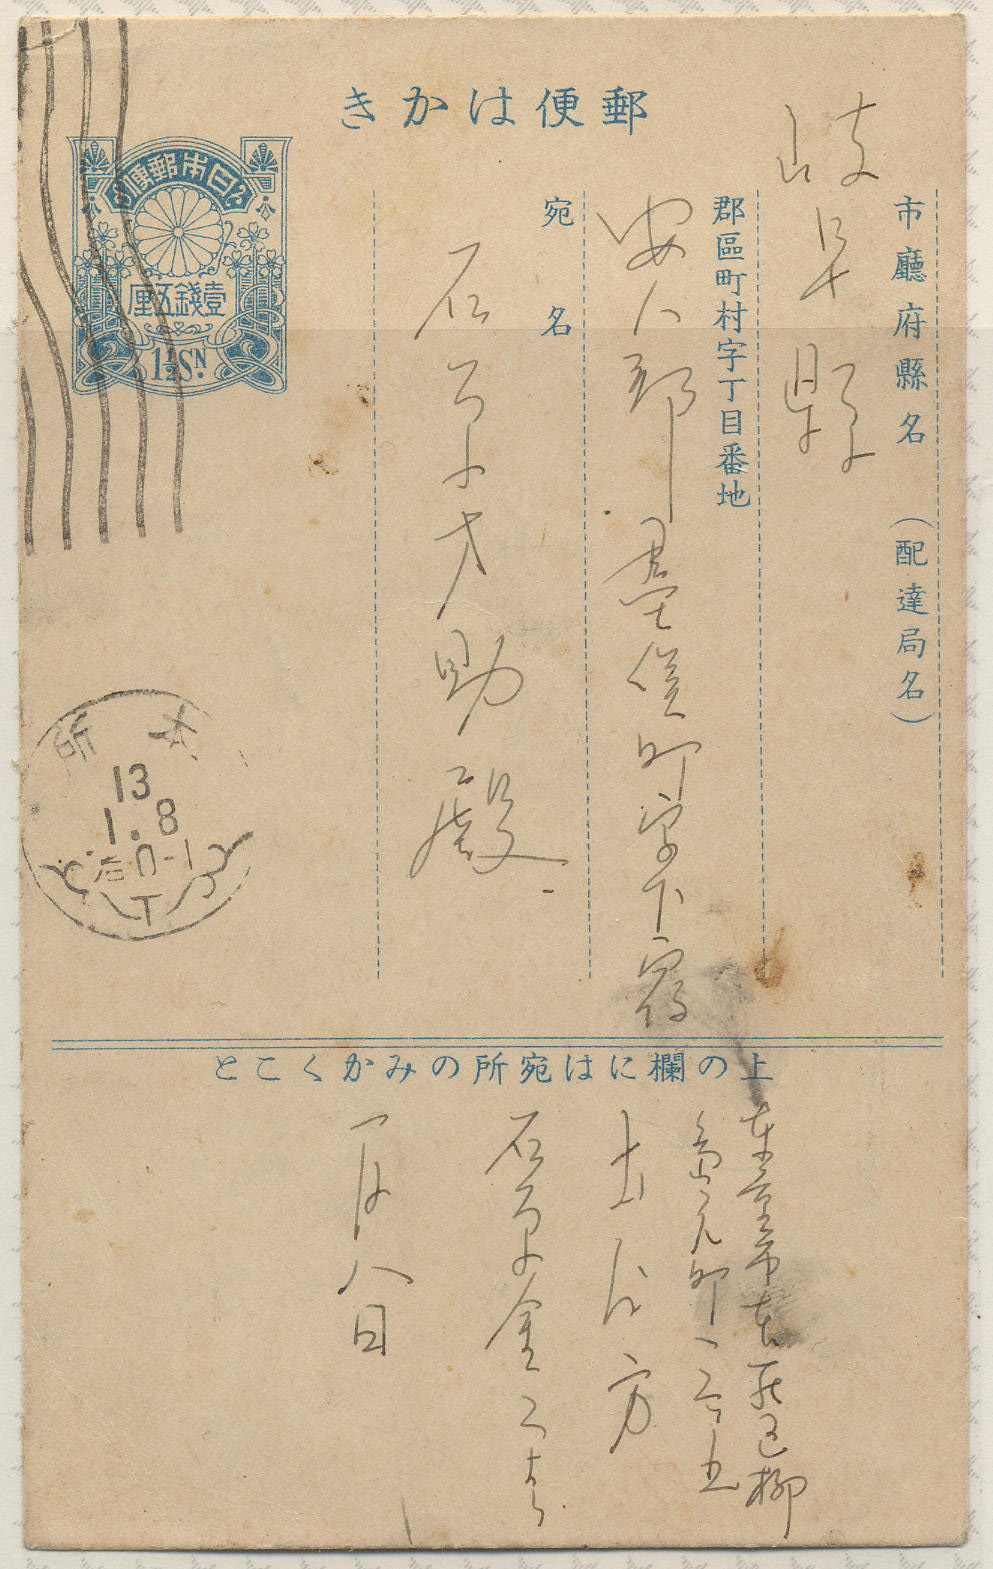 きかは便郵
便郵本日大
厘五錢壹
1½SN.
市廳府縣名（配達局名）
岐阜縣
郡區町村字丁目番地
安八郡墨俣町字下宿
宛名
石原才助殿
本所
13
1.8
后0-1
T
とこくかみの所宛はに欄の上
東京市本所區柳
島元町一二五
方
石原金
一月八日